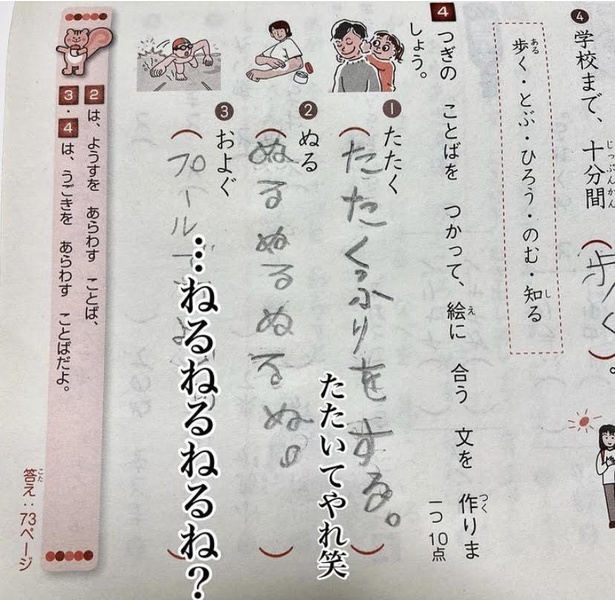 ④ 学校まで、十分間(歩く)。
歩く・とぶ・ひろう・のむ・知る
4 つぎの ことばを つかって、絵に 合う 文を 作りましょう。
一つ10点
① たたく
(たたくふりをする。)
たたいてやれ笑
② ぬる
(ぬるぬるぬるぬ。)
③ およぐ
プールで
…ねるねるねるね?
2は、ようすを あらわす ことば、
3・4は、うごきを あらわす ことばだよ。
答え:73ページ